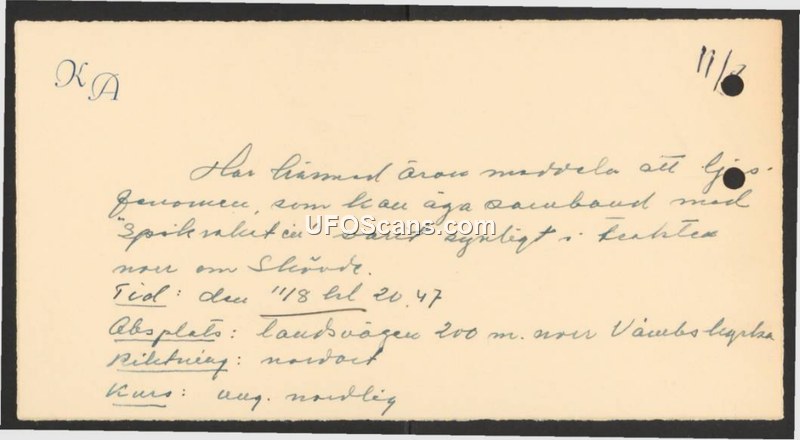 KA
11/8
Har härmed äran meddela att ljus-
fenomen, som kan äga samband med
"Spökraketen" varit synligt i trakten
norr om Skövde.
Tid: den 11/8 kl 20.47
Obsplats: landsvägen 200 m. norr Våmbs kyrka
Riktning: nordost
Kurs: ung. nordlig
UFOScans.com